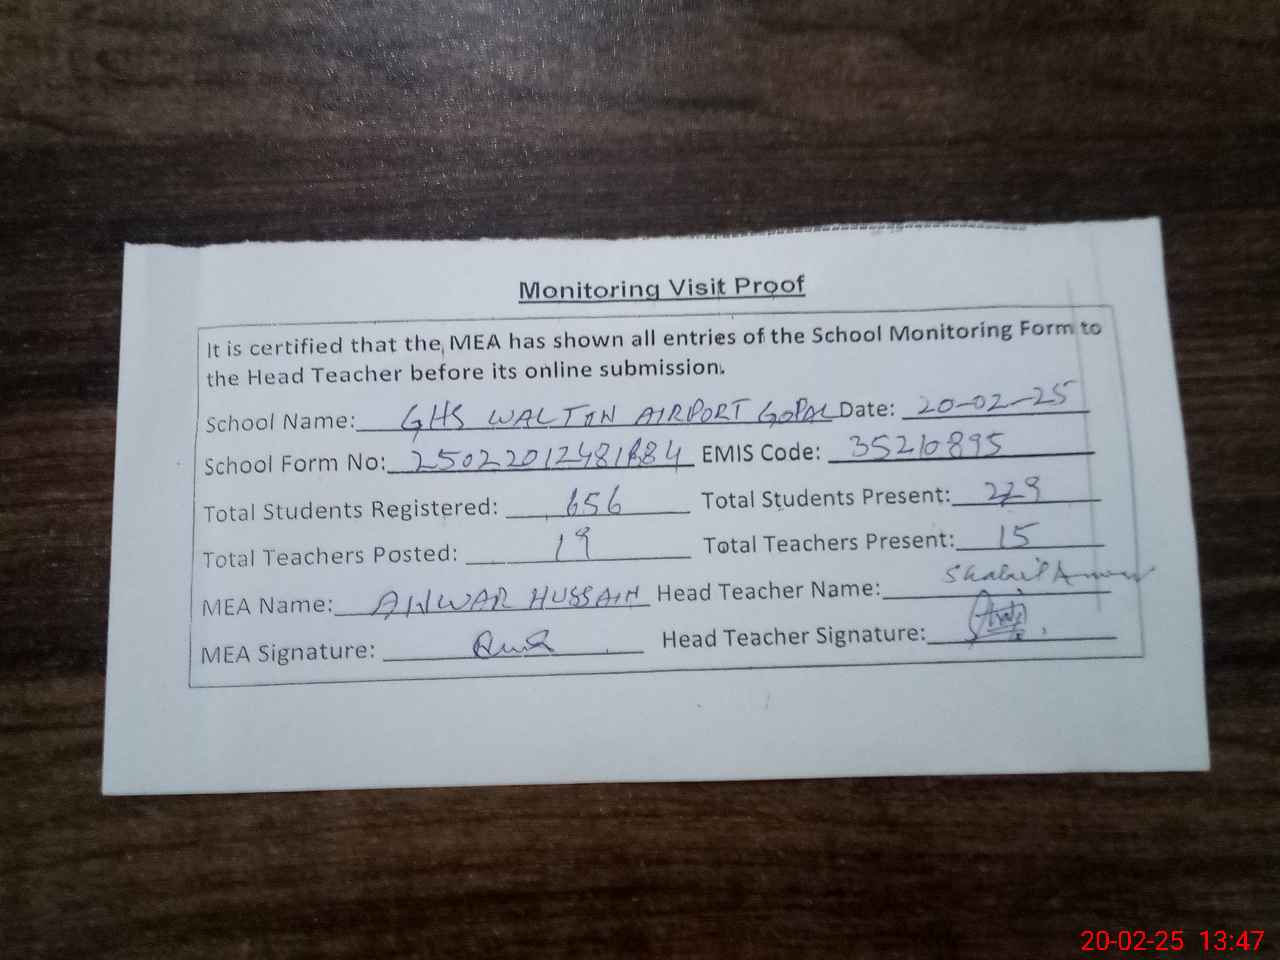 Monitoring Visit Proof
It is certified that the MEA has shown all entries of the School Monitoring Form to
the Head Teacher before its online submission.
School Name: GHS WALTON AIRPORT GOPAL Date: 20-02-25
School Form No: EMIS Code: 35210895
Total Students Registered: 656 Total Students Present: 229
Total Teachers Posted: 19 Total Teachers Present: 15
MEA Name: ANWAR HUSSAIN Head Teacher Name:
MEA Signature: Head Teacher Signature:
20-02-25 13:47